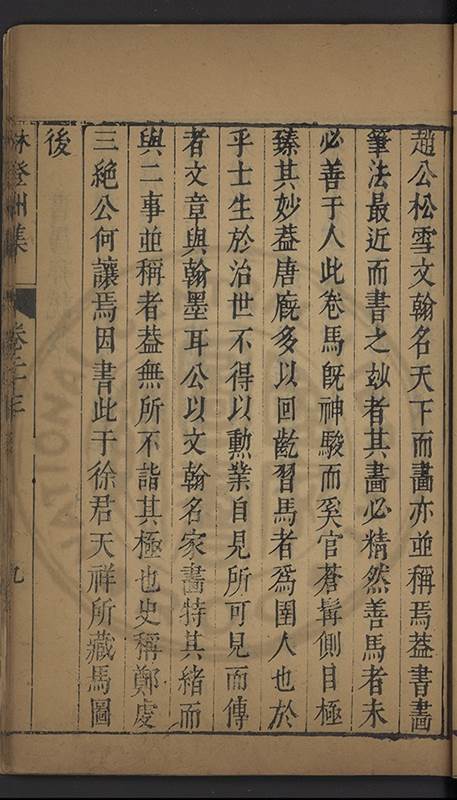 趙公松雪文翰名天下而畵亦並稱焉葢書畵
筆法最近而書之玅者其畵必精然善馬者未
必善于人此卷馬旣神駿而奚官蒼髯側目極
臻其妙葢唐廐多以回齕習馬者爲圉人也於
乎士生於治世不得以勲業自見所可見而傳
者文章與翰墨耳公以文翰名家畵特其緒而
與二事並稱者葢無所不詣其極也史稱鄭虔
三絶公何讓焉因書此于徐君天祥所藏馬圖
後
林登州集
卷二十三
九